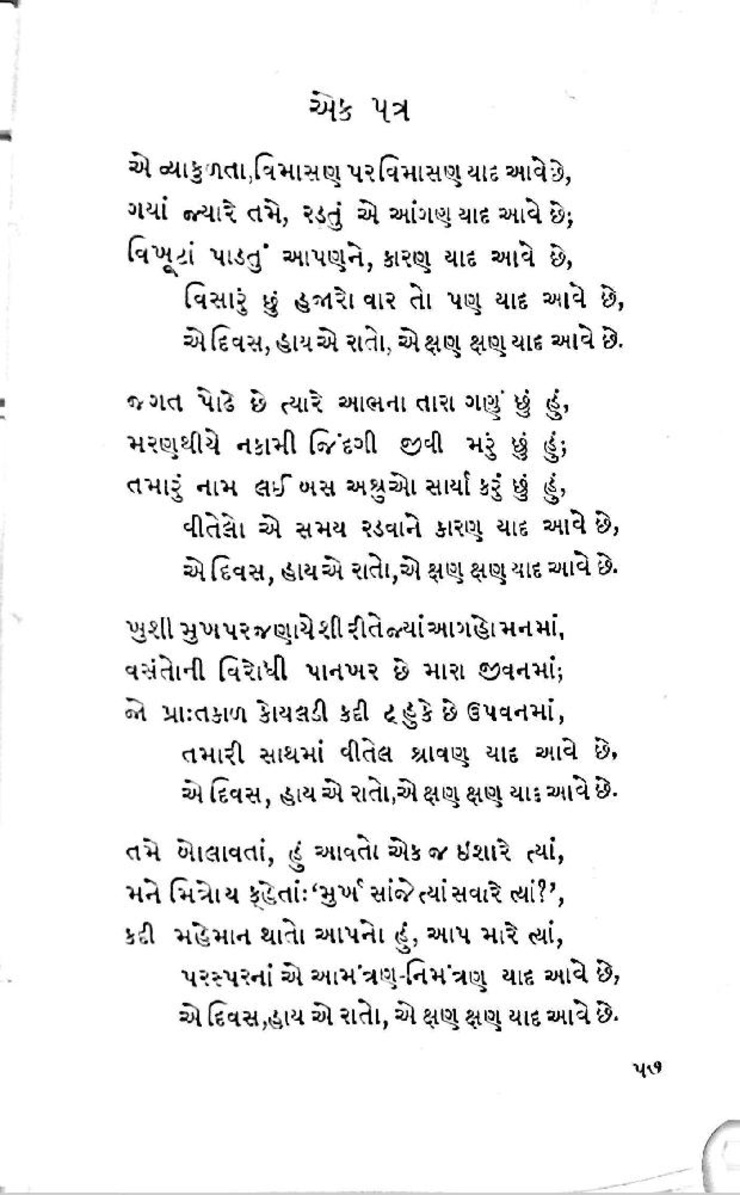 એક પત્ર
એ વ્યાકુળતા, વિમાસણ પર વિમાસણ યાદ આવે છે,
ગયાં જ્યારે તમે, રડતું એ આંગણ યાદ આવે છે;
વિખૂટાં પાડતું આપણને, કારણ યાદ આવે છે,
વિસારું છું હજારો વાર તો પણ યાદ આવે છે,
એ દિવસ, હાય એ રાતો, એ ક્ષણ ક્ષણ યાદ આવે છે.
જગત પોઢે છે ત્યારે આભના તારા ગણું છું હું,
મરણથીયે નકામી જિંદગી જીવી મરું છું હું;
તમારું નામ લઈ બસ અશ્રુઓ સાર્યા કરું છું હું,
વીતેલો એ સમય રડવાને કારણ યાદ આવે છે,
એ દિવસ, હાય એ રાતો, એ ક્ષણ ક્ષણ યાદ આવે છે.
ખુશી મુખ પર જણાયે શી રીતે જ્યાં આગ હો મનમાં,
વસંતોની વિરોધી પાનખર છે મારા જીવનમાં;
જો પ્રાઃતકાળ કોયલડી કદી ટહુંકે છે ઉપવનમાં,
તમારી સાથમાં વીતેલ શ્રાવણ યાદ આવે છે,
એ દિવસ, હાય એ રાતો, એ ક્ષણ ક્ષણ યાદ આવે છે.
તમે બોલાવતાં, હું આવતો એક જ ઇશારે ત્યાં,
મને મિત્રોય કૃહેતાઃ ‘મુર્ખ સાંજે ત્યાં સવારે ત્યાં?’,
કદી મહેમાન થાતો આપનો હું, આપ મારે ત્યાં,
પરસ્પરનાં એ આમંત્રણ-નિમંત્રણ યાદ આવે છે,
એ દિવસ, હાય એ રાતો, એ ક્ષણ ક્ષણ યાદ આવે છે.
૫૭